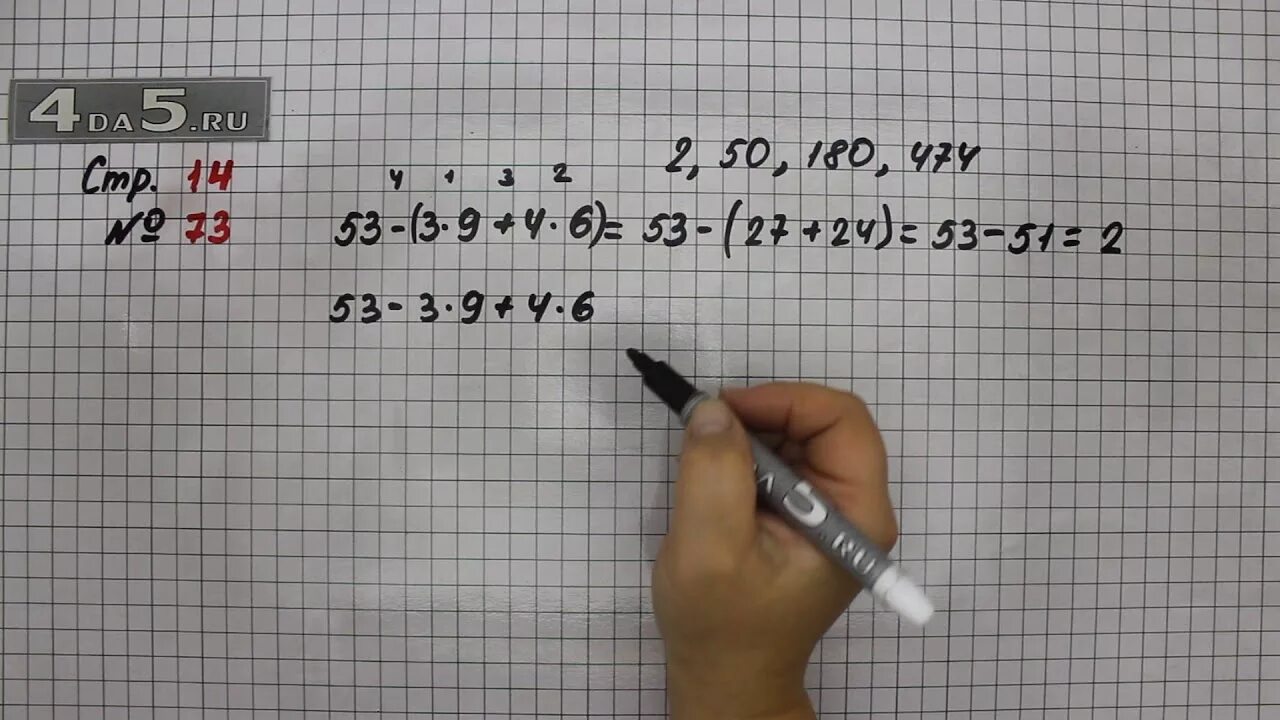 4DA5.RU
2, 50, 180, 474
Стр. 14
4 1 3 2
№ 73
53-(3·9+4·6)= 53-(27+24)= 53-51= 2
53-3·9+4·6
5.RU